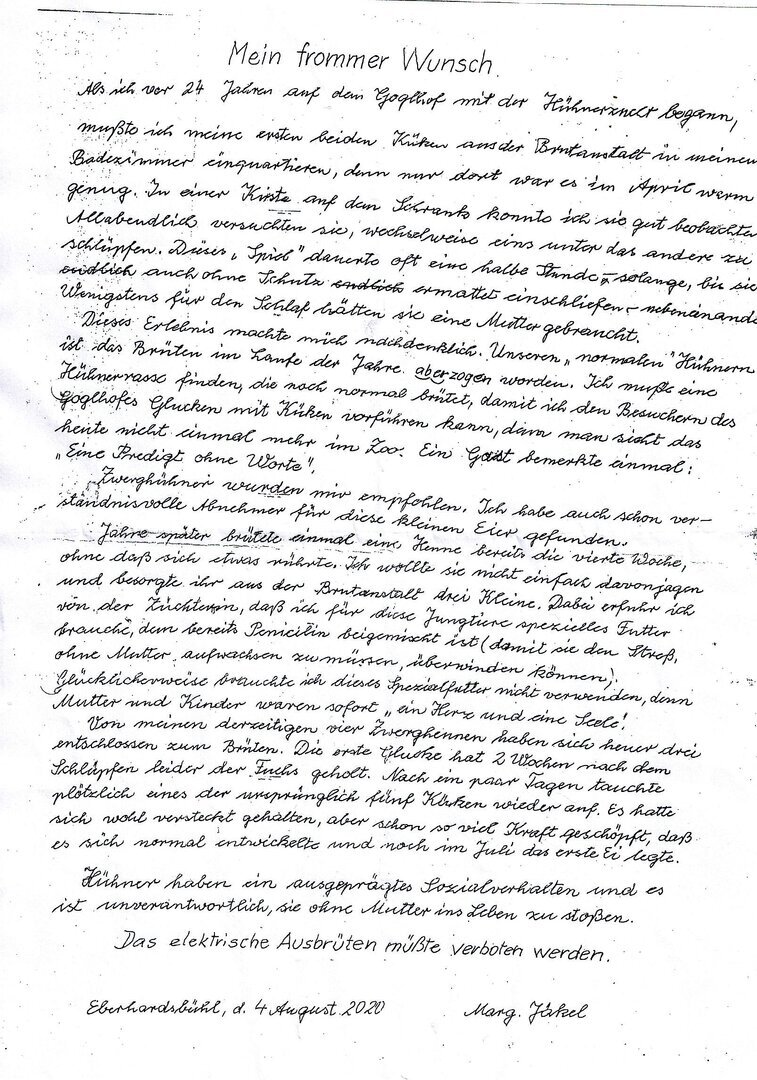 Mein frommer Wunsch
Als ich vor 24 Jahren auf dem Goglhof mit der Hühnerzucht begann,
mußte ich meine ersten beiden Küken aus der Brutanstalt in meinem
Badezimmer einquartieren, denn nur dort war es im April warm
genug. In einer Kiste auf dem Schrank konnte ich sie gut beobachten
Allabendlich versuchten sie, wechselweise eins unter das andere zu
schlüpfen. Dieses „Spiel" dauerte oft eine halbe Stunde – solange, bis sie
endlich auch ohne Schutz endlich ermattet einschliefen – nebeneinander
Wenigstens für den Schlaf hätten sie eine Mutter gebraucht.
Dieses Erlebnis machte mich nachdenklich. Unseren „normalen" Hühnern
ist das Brüten im Laufe der Jahre aberzogen worden. Ich mußte eine
Hühnerrasse finden, die noch normal brütet, damit ich den Besuchern des
Goglhofes Glucken mit Küken vorführen kann, denn man sieht das
heute nicht einmal mehr im Zoo. Ein Gast bemerkte einmal:
„Eine Predigt ohne Worte".
Zwerghühner wurden mir empfohlen. Ich habe auch schon ver-
ständnisvolle Abnehmer für diese kleinen Eier gefunden.
Jahre später brütete einmal eine Henne bereits die vierte Woche,
ohne daß sich etwas rührte. Ich wollte sie nicht einfach davonjagen
und besorgte ihr aus der Brutanstalt drei Kleine. Dabei erfuhr ich
von der Züchterin, daß ich für diese Jungtiere spezielles Futter
brauche, dem bereits Penicilin beigemischt ist (damit sie den Streß,
ohne Mutter aufwachsen zu müssen, überwinden können).
Glücklicherweise brauchte ich dieses Spezialfutter nicht verwenden, denn
Mutter und Kinder waren sofort „ein Herz und eine Seele".
Von meinen derzeitigen vier Zwerghennen haben sich heuer drei
entschlossen zum Brüten. Die erste Glucke hat 2 Wochen nach dem
Schlüpfen leider der Fuchs geholt. Nach ein paar Tagen tauchte
plötzlich eines der ursprünglich fünf Küken wieder auf. Es hatte
sich wohl versteckt gehalten, aber schon so viel Kraft geschöpft, daß
es sich normal entwickelte und noch im Juli das erste Ei legte.
Hühner haben ein ausgeprägtes Sozialverhalten und es
ist unverantwortlich, sie ohne Mutter ins Leben zu stoßen.
Das elektrische Ausbrüten müßte verboten werden.
Eberhardsbühl, d. 4 August 2020 Marg. Jäkel